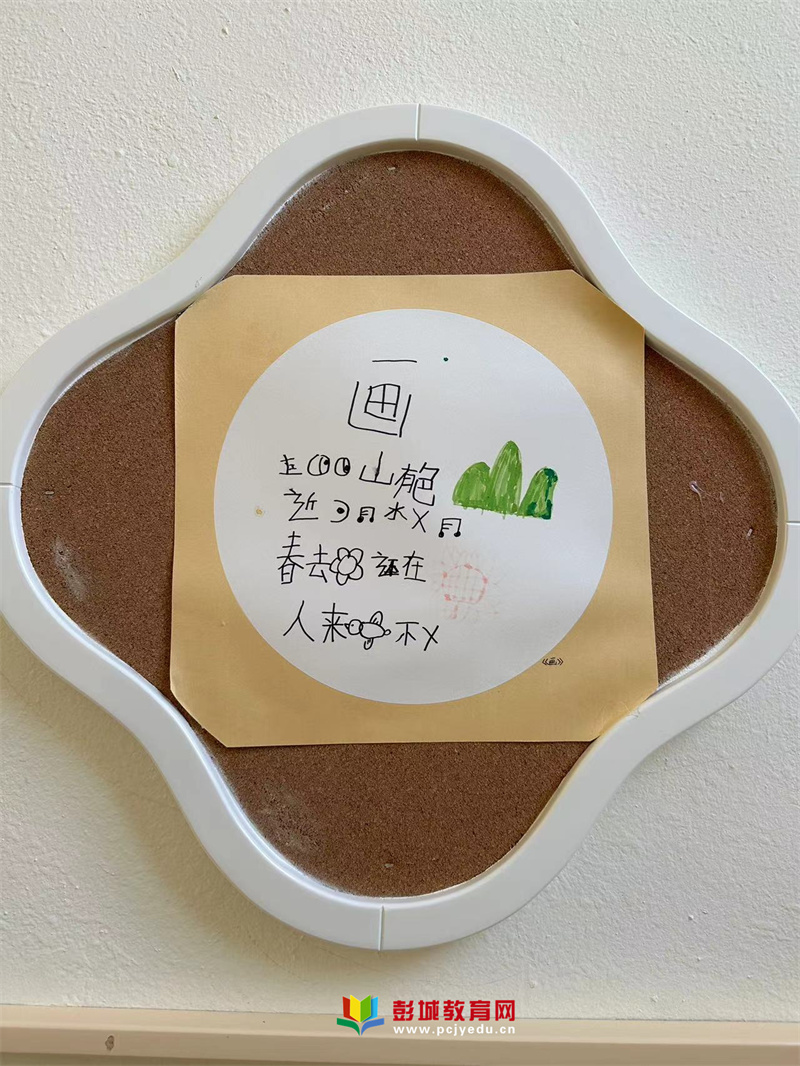 画
山有色
近 水
春去 在
人来 不
《画》
彭城教育网
www.pcjyedu.cn